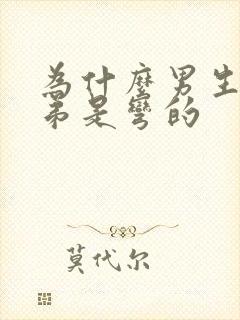 為什麼男生
弟是彎的
莫代尔